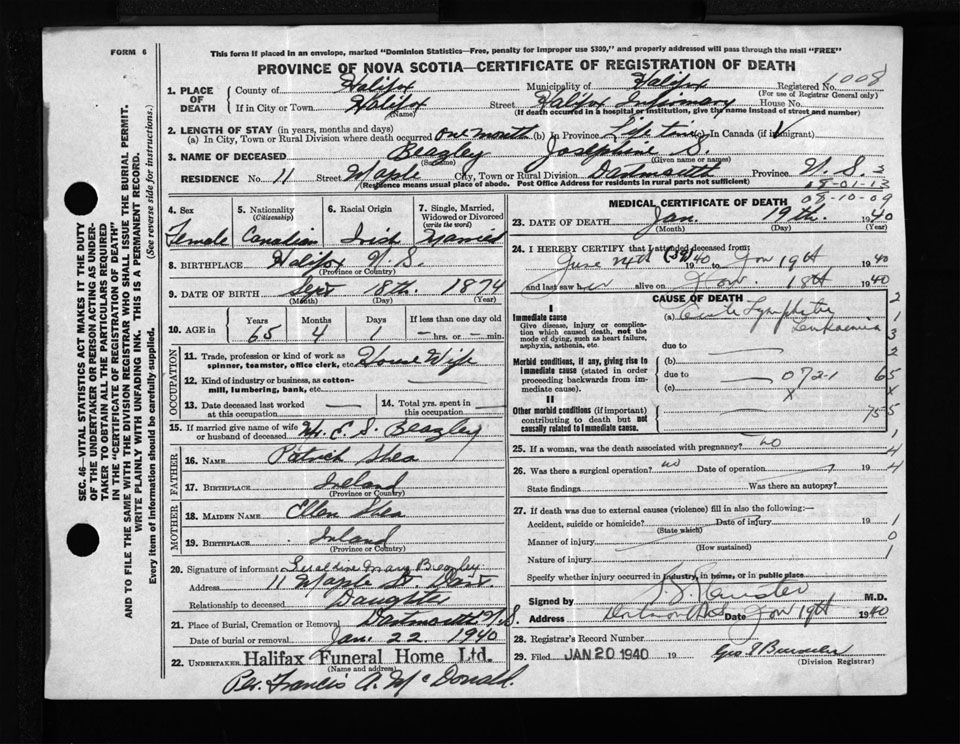 FORM 6
This form if placed in an envelope, marked "Dominion Statistics—Free, penalty for improper use $300," and properly addressed will pass through the mail "FREE"
PROVINCE OF NOVA SCOTIA—CERTIFICATE OF REGISTRATION OF DEATH
SEC. 46—VITAL STATISTICS ACT MAKES IT THE DUTY
OF THE UNDERTAKER OR PERSON ACTING AS UNDER-
TAKER TO OBTAIN ALL THE PARTICULARS REQUIRED
IN THE "CERTIFICATE OF REGISTRATION OF DEATH"
AND TO FILE THE SAME WITH THE DIVISION REGISTRAR WHO SHALL ISSUE THE BURIAL PERMIT.
WRITE PLAINLY WITH UNFADING INK. THIS IS A PERMANENT RECORD.
Every item of information should be carefully supplied. (See reverse side for instructions.)
1. PLACE OF DEATH
County of Halifax Municipality of Halifax Registered No. 6008
(For use of Registrar General only)
If in City or Town Halifax Street Halifax Infirmary House No.
(Name) (If death occurred in a hospital or institution, give the name instead of street and number)
2. LENGTH OF STAY (in years, months and days)
(a) In City, Town or Rural Division where death occurred one month (b) In Province Life time (c) In Canada (if immigrant)
3. NAME OF DECEASED Beazley Josephine S.
(Surname) (Given name or names)
RESIDENCE No. 11 Street Maple City, Town or Rural Division Dartmouth Province N.S. 3
(Residence means usual place of abode. Post Office Address for residents in rural parts not sufficient)
08-01-13
08-10-09
4. Sex Female
5. Nationality (Citizenship) Canadian
6. Racial Origin Irish
7. Single, Married, Widowed or Divorced (write the word) Married
8. BIRTHPLACE Halifax N.S.
(Province or Country)
9. DATE OF BIRTH Sept 18th. 1874
(Month) (Day) (Year)
10. AGE in Years 65 Months 4 Days 1 If less than one day old hrs. or min.
OCCUPATION
11. Trade, profession or kind of work as spinner, teamster, office clerk, etc. House Wife
12. Kind of industry or business, as cotton-mill, lumbering, bank, etc.
13. Date deceased last worked at this occupation
14. Total yrs. spent in this occupation
15. If married give name of wife or husband of deceased Mr. E. S. Beazley
FATHER
16. NAME Patrick Shea
17. BIRTHPLACE Ireland
(Province or Country)
MOTHER
18. MAIDEN NAME Ellen Shea
19. BIRTHPLACE Ireland
(Province or Country)
20. Signature of informant Geraldine Mary Beazley
Address 11 Maple St. Dart.
Relationship to deceased Daughter
21. Place of Burial, Cremation or Removal Dartmouth N.S.
Date of burial or removal Jan. 22 1940
22. UNDERTAKER Halifax Funeral Home Ltd.
(Name and address)
Per. Francis A. McDonald.
MEDICAL CERTIFICATE OF DEATH
23. DATE OF DEATH Jan. 19th. 1940
(Month) (Day) (Year)
24. I HEREBY CERTIFY that I attended deceased from:
June 24th (39) 1940 to Jan 19th 1940
and last saw her alive on 18th 1940
CAUSE OF DEATH
I
Immediate cause
Give disease, injury or complication which caused death, not the mode of dying, such as heart failure, asphyxia, asthenia, etc.
(a) Acute Lymphatic Leukaemia
due to
Morbid conditions, if any, giving rise to immediate cause (stated in order proceeding backwards from immediate cause).
(b)
due to 072-1
(c) x
II
Other morbid conditions (if important) contributing to death but not causally related to immediate cause.
2
1
3
2
65
x
755
1
4
4
1
0
1
25. If a woman, was the death associated with pregnancy? no
26. Was there a surgical operation? no Date of operation 19
State findings Was there an autopsy?
27. If death was due to external causes (violence) fill in also the following:—
Accident, suicide or homicide? Date of injury 19
(State which)
Manner of injury
(How sustained)
Nature of injury
Specify whether injury occurred in industry, in home, or in public place
Signed by M.D.
Address Jan 19th 1940
28. Registrar's Record Number
29. Filed JAN 20 1940 19
(Division Registrar)